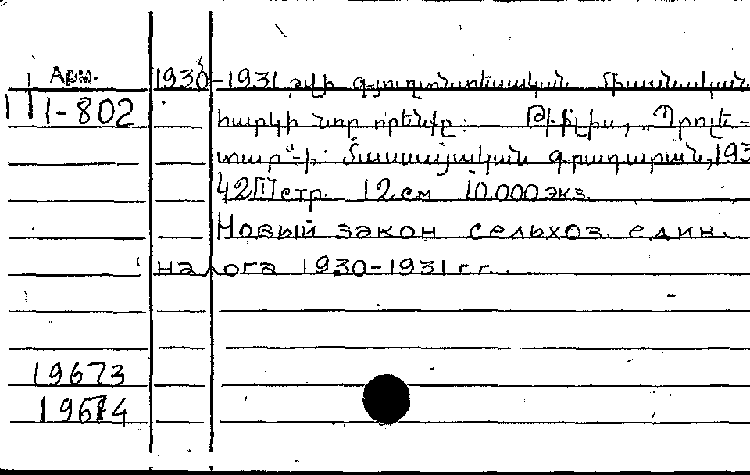 Арм. 1930-1931 թվի գյուղտնտեսական միասնական
III-802 հարկի նոր որենքը: Թիֆլիս, Պրոլե-
տար"-ի մասսայական գրադարան, 193
42 стр. 12 см 10.000 экз.
Новый закон сельхоз. един.
налога 1930-1931 г.г.
19673
19674